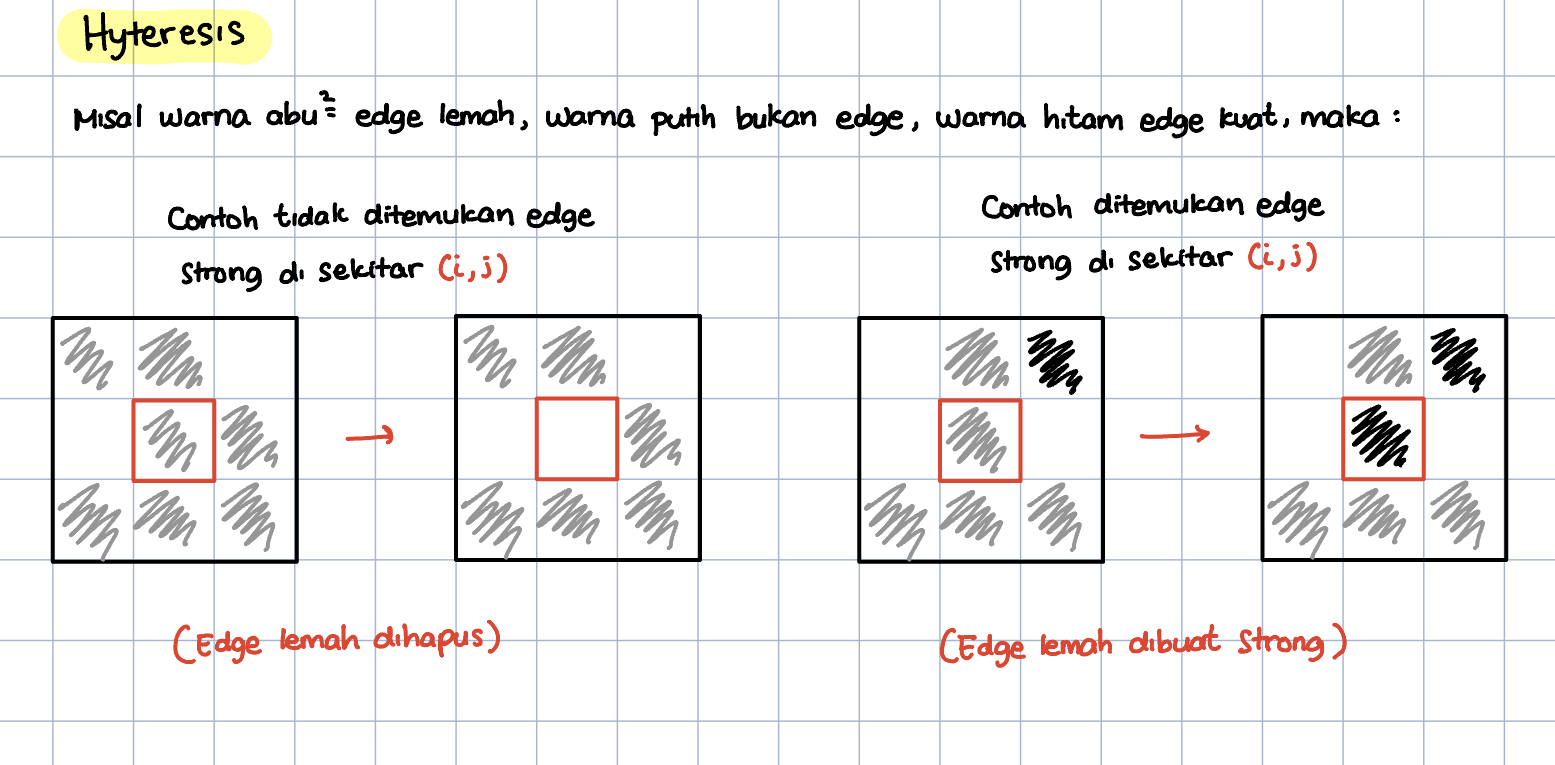 Hyteresis
Misal warna abu² = edge lemah, warna putih bukan edge, warna hitam edge kuat, maka :
Contoh tidak ditemukan edge
strong di sekitar (i,j)
Contoh ditemukan edge
strong di sekitar (i,j)
(Edge lemah dihapus)
(Edge lemah dibuat strong)